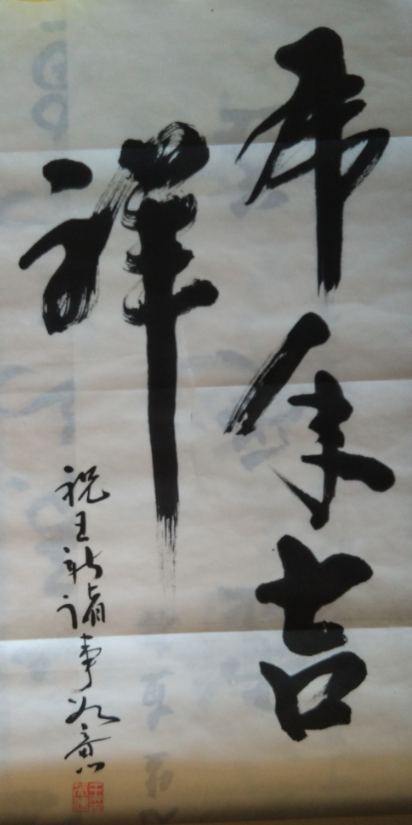 虎年吉
祥
祝王新诸事如意